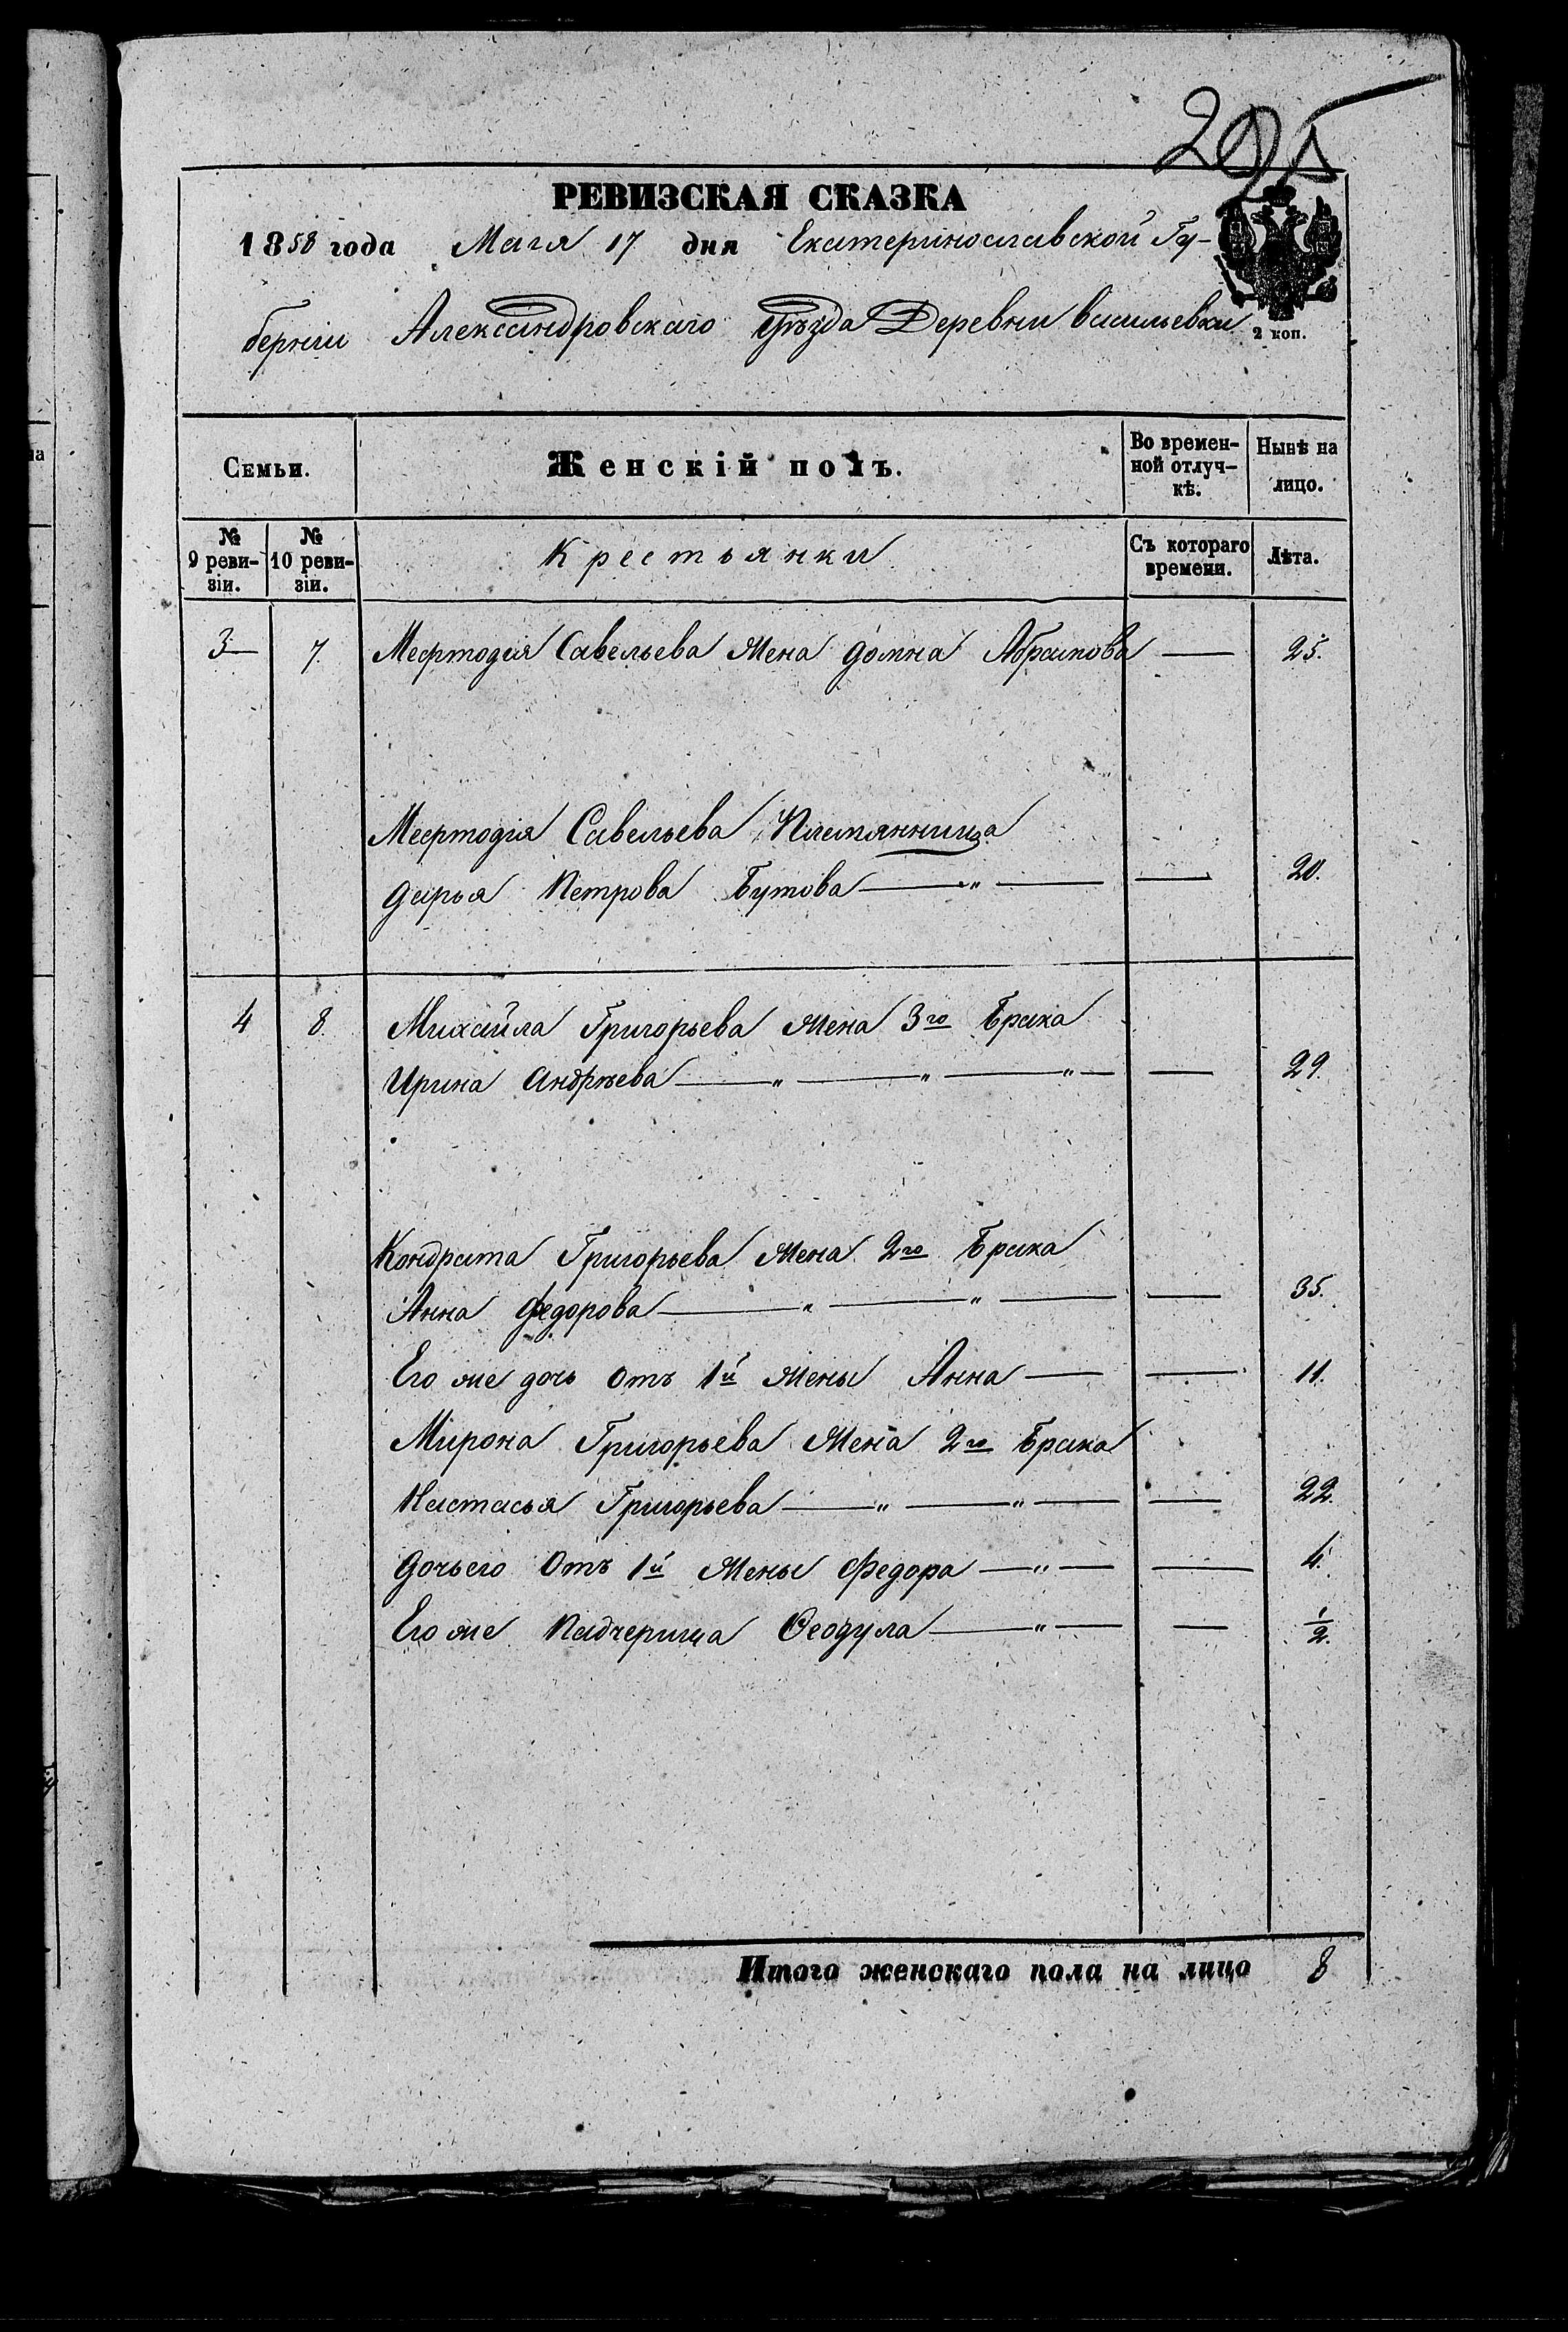 РЕВИЗСКАЯ СКАЗКА
1858 года Мая 17 дня Екатеринославской Гу-
берніи Александровскаго Уѣзда Деревни Васильевки
2 коп.
Семьи.
Женскій полъ.
Во времен-
ной отлуч-
кѣ.
Нынѣ на
лицо.
№
9 реви-
зіи.
№
10 реви-
зіи.
Крестьянки
Съ котораго
времени.
Лѣта.
3 7. Мефтодія Савельева жена Домна Абрамова — 25.
Мефтодія Савельева Племянница
Дарья Петрова Бутова — " — — 20.
4 8. Михайла Григорьева жена 3го Брака
Ирина Андрѣева — " — " — " — — 29.
Кондрата Григорьева жена 2го Брака
Анна Федорова — " — " — — 35.
Его же дочь отъ 1й жены Анна — — 11.
Мирона Григорьева жена 2го Брака
Настасья Григорьева — " — " — — 22.
Дочьего Отъ 1й жены Федора — " — — 4.
Его же Падчерица Феодула — " — — 1/2.
Итого женскаго пола на лицо 8